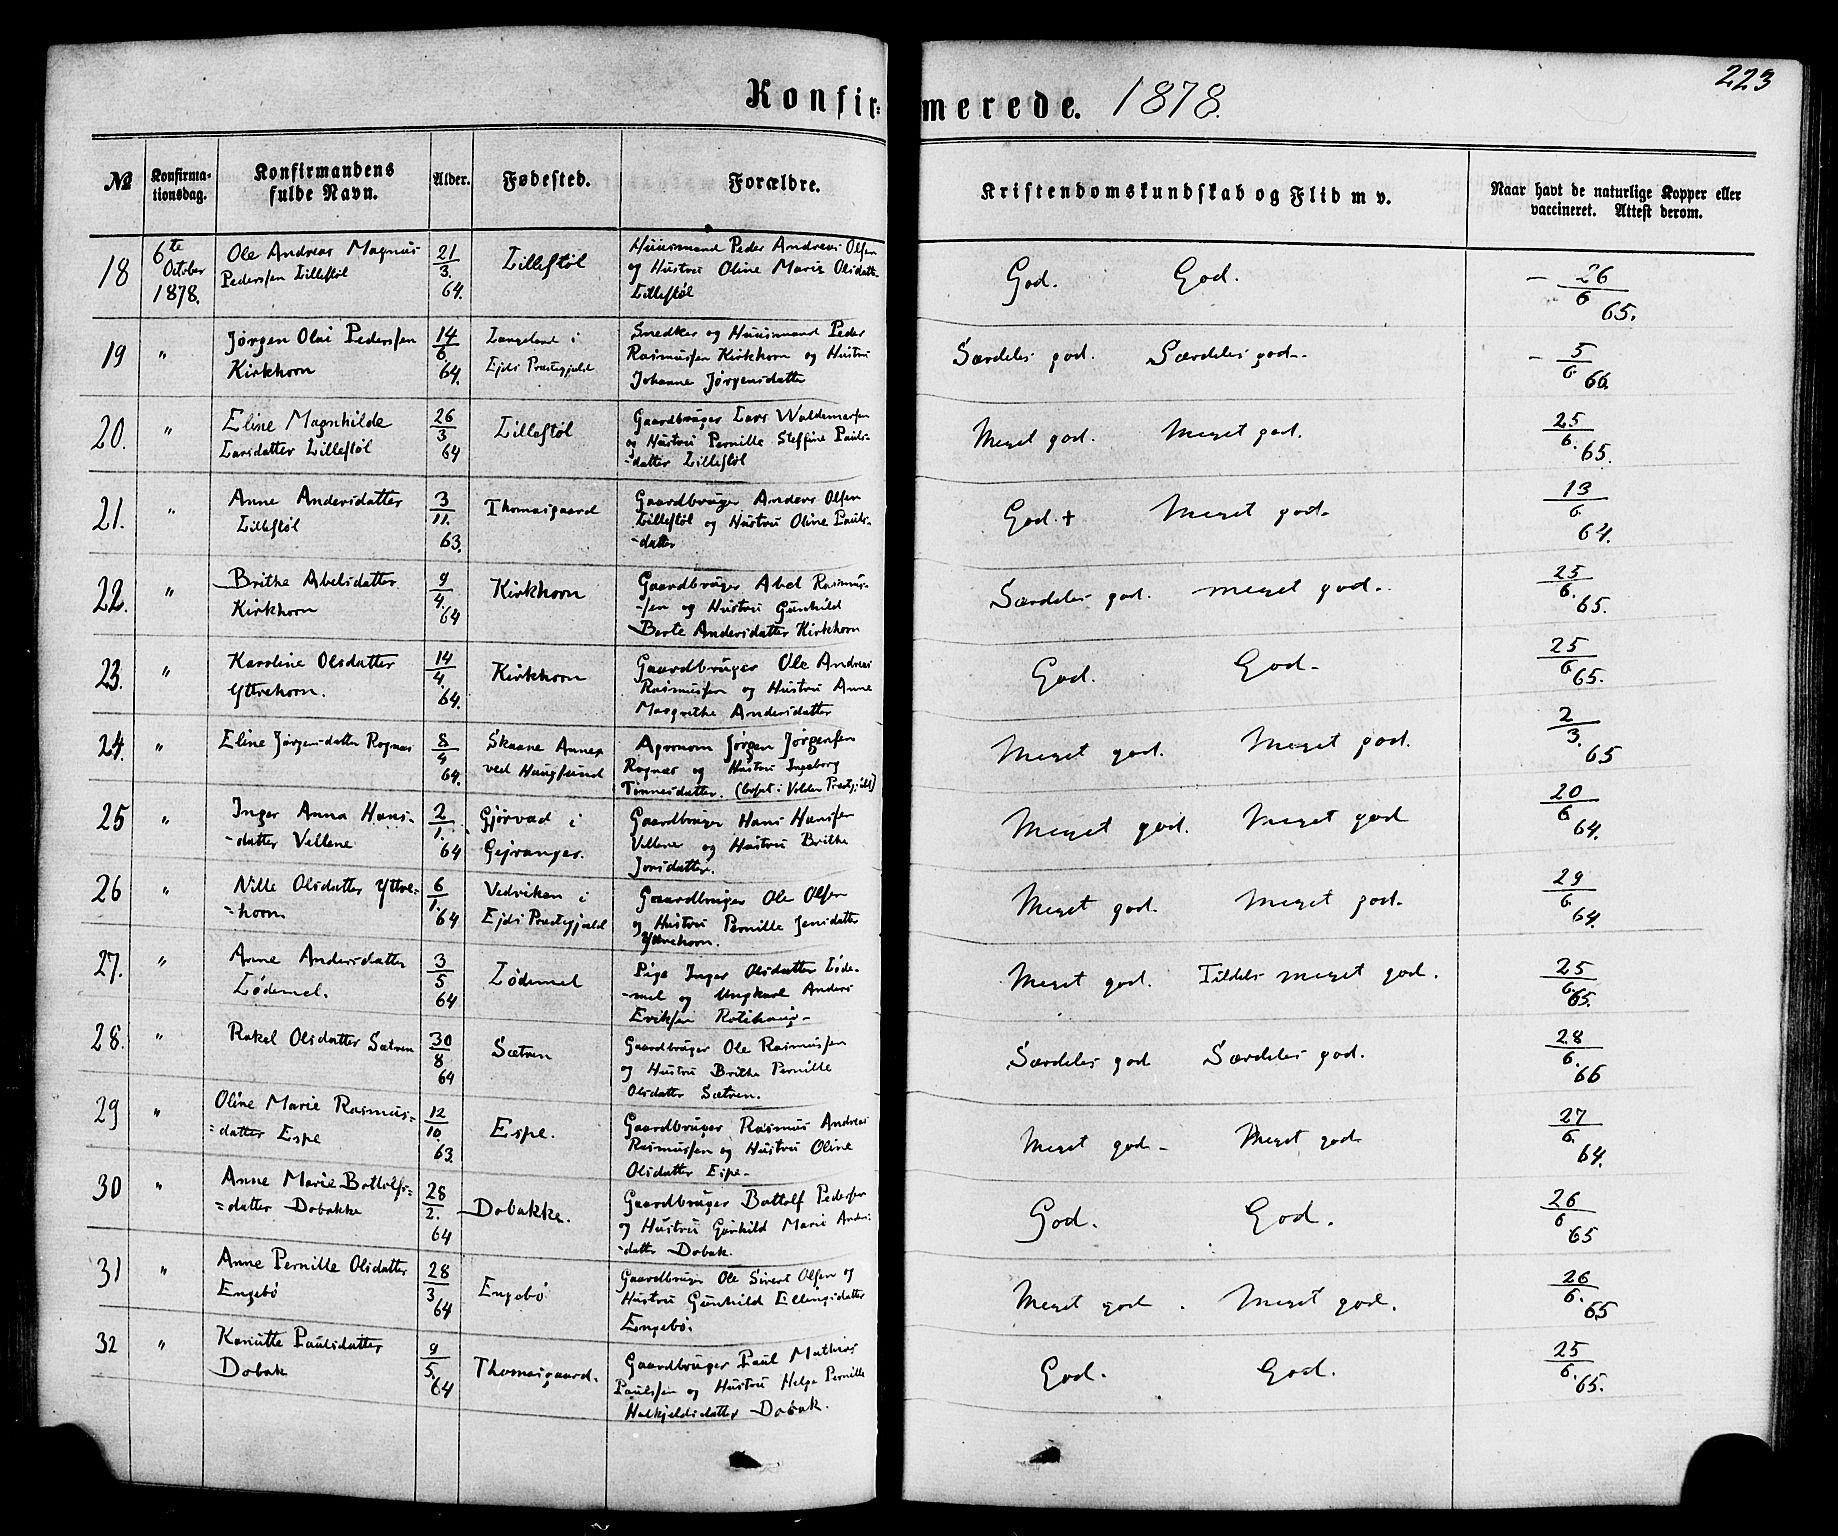 223
Konfirmerede. 1878.
№ Konfirmationsdag. Konfirmandens fulde Navn. Alder. Fødested. Forældre. Kristendomskundskab og Flid m v. Naar havt de naturlige Kopper eller vaccineret. Attest derom.
18 6te October 1878. Ole Andreas Magnus Pederssen Lillestøl 21/3. 64. Lillestøl Huusmand Peder Andreas Olsen og Hustru Oline Marie Olsdatt. Lillestøl God. God. - 26/6 65.
19 " Jørgen Olai Pederssen Kirkhorn 14/6. 64. Langeland i Ejds Præstegjæld Snedker og Huusmand Peder Rasmussen Kirkhorn og Hustru Johanne Jørgensdatter Særdeles god. Særdeles god. - 5/6. 66.
20. " Eline Magnhilde Larsdatter Lillestøl 26/3 64 Lillestøl Gaardbruger Lars Waldemarsen og Hustru Pernille Steffine Pauls-datter Lillestøl Meget god. Meget god. 25/6. 65.
21. " Anne Andersdatter Lillestøl 3/11. 63. Thomasgaard Gaardbruger Anders Olsen Lillestøl og Hustru Oline Pauls-datter God. + Meget god. 13/6 64.
22. " Brithe Abelsdatter Kirkhorn 9/4. 64 Kirkhorn Gaardbruger Abel Rasmus-sen og Hustru Gunhild Berte Andersdatter Kirkhorn Særdeles god. meget god. 25/6. 65.
23. " Karoline Olsdatter Yttrehorn. 14/4. 64. Kirkhorn Gaardbruger Ole Andreas Rasmussen og Hustru Anne Margrethe Andersdatter God. God. 25/6 65.
24. " Eline Jørgensdatter Rognæs 8/4 64. Skaare Annex ved Haugsund Agronom Jørgen Jørgensen Rognæs og Hustru Ingeborg Tønnesdatter. (bosat i Volden Præstgjæld) Meget god. Meget god. 2/3. 65
25 " Inger Anna Hans-datter Vellene 2/1. 64 Gjørvad i Gejranger. Gaardbruger Hans Hansen Vellene og Hustru Brithe Jonsdatter. Meget god. Meget god 20/6 64.
26 " Nille Olsdatter Yttre-horn 6/1. 64 Vedviken i Ejds Præstegjæld Gaardbruger Ole Olsen og Hustru Pernille Jensdatter Yttrehorn. Meget god. Meget god. 29/6 64.
27. " Anne Andersdatter Lødemel. 3/5 64 Lødemel Pige Inger Olsdatter Løde-mel og Ungkarl Anders Eriksen Rotihaug Meget god. Tildels meget god. 25/6. 65.
28. " Rakel Olsdatter Sætren 30/8 64 Sætren Gaardbruger Ole Rasmussen og Hustru Brithe Pernille Olsdatter Sætren. Særdeles god Særdeles god. 28/6. 66
29 " Oline Marie Rasmus-datter Espe 12/10. 63. Espe. Gaardbruger Rasmus Andreas Rasmussen og Hustru Oline Olsdatter Espe. Meget god. Meget god. 27/6. 64.
30 " Anne Marie Bottolfs-datter Dobakke 28/2. 64 Dobakke. Gaardbruger Bottolf Pedersen og Hustru Gunhild Marie Anders-datter Dobak. God. God. 26/6 65
31 " Anne Pernille Olsdatter Engebø 28/3 64 Engebø Gaardbruger Ole Sivert Olsen og Hustru Gunhild Ellingsdatter Engebø. Meget god. Meget god. 26/6. 65
32 " Kanutte Paulsdatter Dobak 9/5. 64 Thomasgaard. Gaardbruger Paul Mathias Paulssen og Hustru Helge Pernille Halkjeldsdatter Dobak. God. God. 25/6. 65.